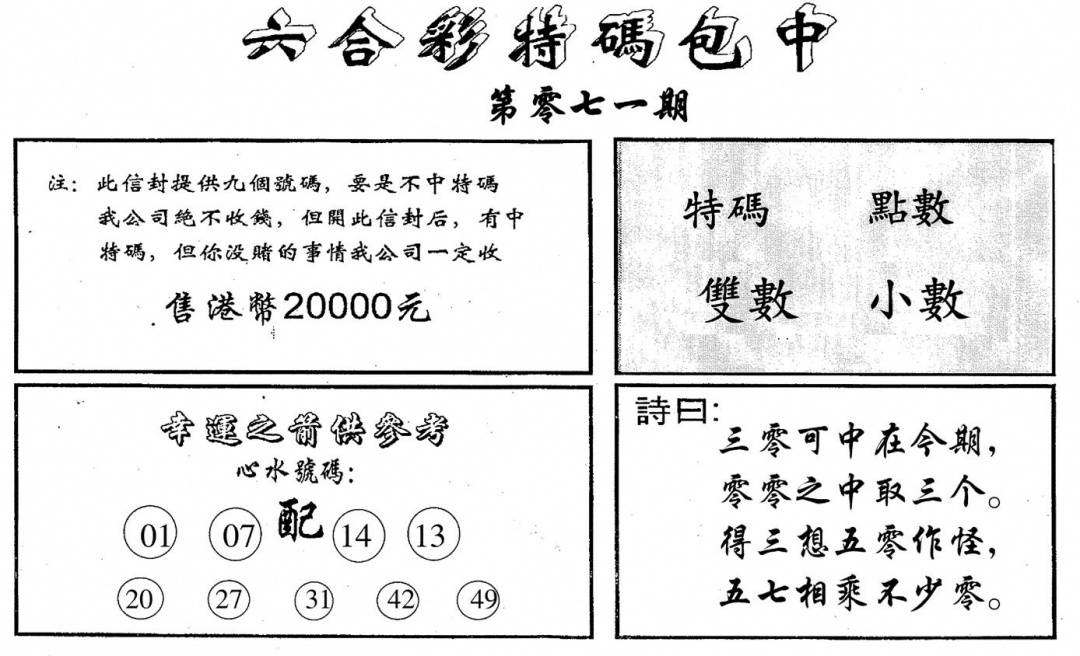 六合彩特碼包中
第零七一期
注：此信封提供九個號碼，要是不中特碼
我公司絕不收錢，但開此信封后，有中
特碼，但你没賭的事情我公司一定收
售港幣20000元
特碼 點數
雙數 小數
幸運之箭供參考
心水號碼：
01 07 配 14 13
20 27 31 42 49
詩曰：
三零可中在今期，
零零之中取三个。
得三想五零作怪，
五七相乘不少零。